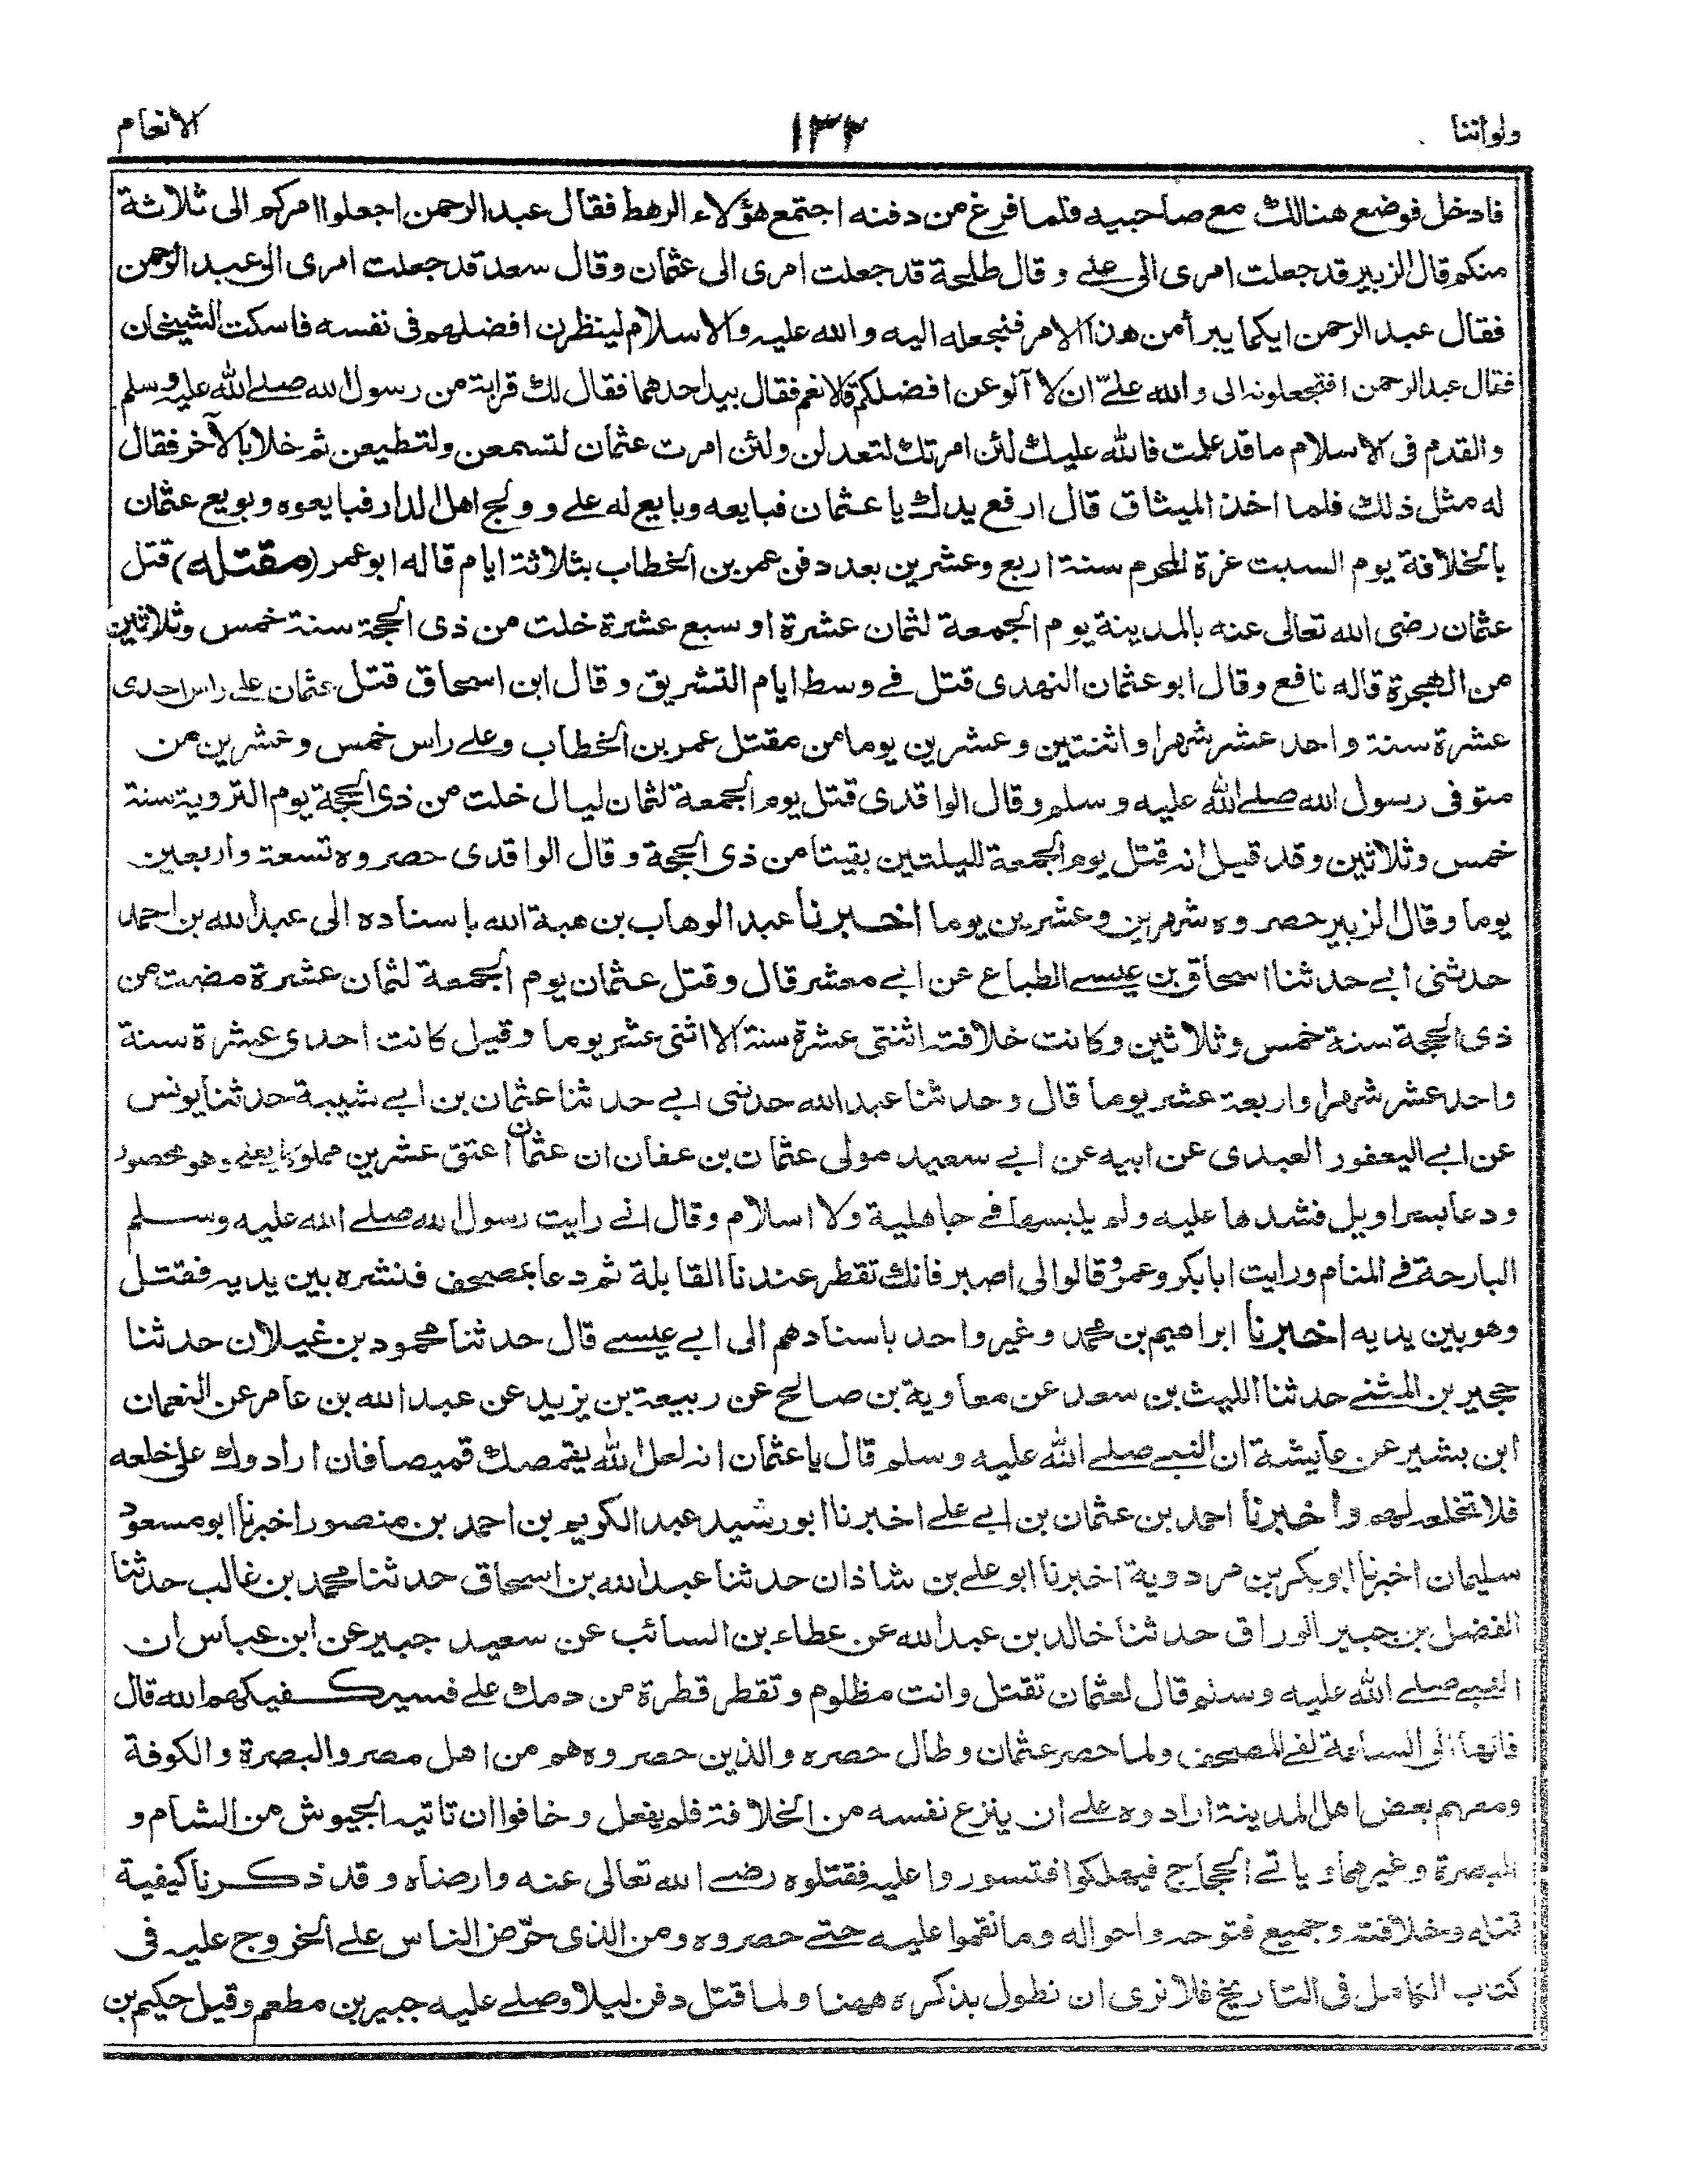 ولواننا ١٣٣ الانعام
فادخل فوضع هنالك مع صاحبيه فلما فرغ من دفنه اجتمع هؤلاء الرهط فقال عبد الرحمن اجعلوا امركم الى ثلاثة
منكم قال الزبير قد جعلت امرى الى على و قال طلحة قد جعلت امرى الى عثمان وقال سعد قد جعلت امرى الى عبد الرحمن
فقال عبد الرحمن ايكما يبرأ من هذا الامر فنجعله اليه والله عليه والاسلام لينظرن افضلهم فى نفسه فاسكت الشيخان
فقال عبد الرحمن افتجعلونه الى والله علىّ ان لا آلو عن افضلكم قالا نعم فقال بيد احدهما فقال لك قرابة من رسول الله صلى الله عليه وسلم
والقدم فى الاسلام ما قد علمت فالله عليك لئن امرتك لتعدلن ولئن امرت عثمان لتسمعن ولتطيعن ثم خلا بالآخر فقال
له مثل ذلك فلما اخذ الميثاق قال ارفع يدك يا عثمان فبايعه وبايع له على و ولج اهل الدار فبايعوه وبويع عثمان
بالخلافة يوم السبت غرة المحرم سنة اربع وعشرين بعد دفن عمر بن الخطاب بثلاثة ايام قاله ابو عمر (مقتله) قتل
عثمان رضى الله تعالى عنه بالمدينة يوم الجمعة لثمان عشرة او سبع عشرة خلت من ذى الحجة سنة خمس وثلاثين
من الهجرة قاله نافع وقال ابو عثمان النهدى قتل فى وسط ايام التشريق وقال ابن اسحاق قتل عثمان على راس احدى
عشرة سنة واحد عشر شهرا واثنتين وعشرين يوما من مقتل عمر بن الخطاب وعلى راس خمس وعشرين من
متوفى رسول الله صلى الله عليه وسلم وقال الواقدى قتل يوم الجمعة لثمان ليال خلت من ذى الحجة يوم التروية سنة
خمس وثلاثين وقد قيل انه قتل يوم الجمعة لليلتين بقيتا من ذى الحجة وقال الواقدى حصروه تسعة واربعين
يوما وقال الزبير حصروه شهرين وعشرين يوما اخبرنا عبد الوهاب بن هبة الله باسناده الى عبد الله بن احمد
حدثنى ابى حدثنا اسحاق بن عيسى الطباع عن ابى معشر قال وقتل عثمان يوم الجمعة لثمان عشرة مضت من
ذى الحجة سنة خمس وثلاثين وكانت خلافته اثنتى عشرة سنة الا اثنى عشر يوما وقيل كانت احدى عشرة سنة
واحد عشر شهرا واربعة عشر يوما قال وحدثنا عبد الله حدثنى ابى حدثنا عثمان بن ابى شيبة حدثنا يونس
عن ابى اليعفور العبدى عن ابيه عن ابى سعيد مولى عثمان بن عفان ان عثمان اعتق عشرين مملوكا يعنى وهو محصور
ودعا بسراويل فشدها عليه ولم يلبسها فى جاهلية ولا اسلام وقال انى رايت رسول الله صلى الله عليه وسلم
البارحة فى المنام ورايت ابا بكر وعمر وقالوا لى اصبر فانك تقطر عندنا القابلة ثم دعا بمصحف فنشره بين يديه فقتل
وهو بين يديه اخبرنا ابراهيم بن محمد وغير واحد باسنادهم الى ابى عيسى قال حدثنا محمود بن غيلان حدثنا
حجير بن المثنى حدثنا الليث بن سعد عن معاوية بن صالح عن ربيعة بن يزيد عن عبد الله بن عامر عن النعمان
ابن بشير عن عايشة ان النبى صلى الله عليه وسلم قال يا عثمان انه لعل الله يقمصك قميصا فان ارادوك على خلعه
فلا تخلعه لهم واخبرنا احمد بن عثمان بن ابى على اخبرنا ابو رشيد عبد الكريم بن احمد بن منصور اخبرنا ابو مسعود
سليمان اخبرنا ابو بكر بن مردوية اخبرنا ابو على بن شاذان حدثنا عبد الله بن اسحاق حدثنا محمد بن غالب حدثنا
الفضل بن جبير الوراق حدثنا خالد بن عبد الله عن عطاء بن السائب عن سعيد جبير عن ابن عباس ان
النبى صلى الله عليه وسلم قال لعثمان تقتل وانت مظلوم وتقطر قطرة من دمك على فسيكفيكهم الله قال
فانها الى الساعة لفى المصحف ولما حصر عثمان وطال حصره والذين حصروه هم من اهل مصر والبصرة والكوفة
ومعهم بعض اهل المدينة ارادوه على ان ينزع نفسه من الخلافة فلم يفعل وخافوا ان تاتيه الجيوش من الشام و
البصرة وغيرهما و ياتى الحجاج فيهلكوا فتسوروا عليه فقتلوه رضى الله تعالى عنه وارضاه وقد ذكرنا كيفية
قتله وخلافته وجميع فتوحه واحواله وما نقموا عليه حتى حصروه ومن الذى حرّض الناس على الخروج عليه فى
كتاب الكامل فى التاريخ فلا نرى ان نطول بذكره ههنا ولما قتل دفن ليلا وصلى عليه جبير بن مطعم وقيل حكيم بن